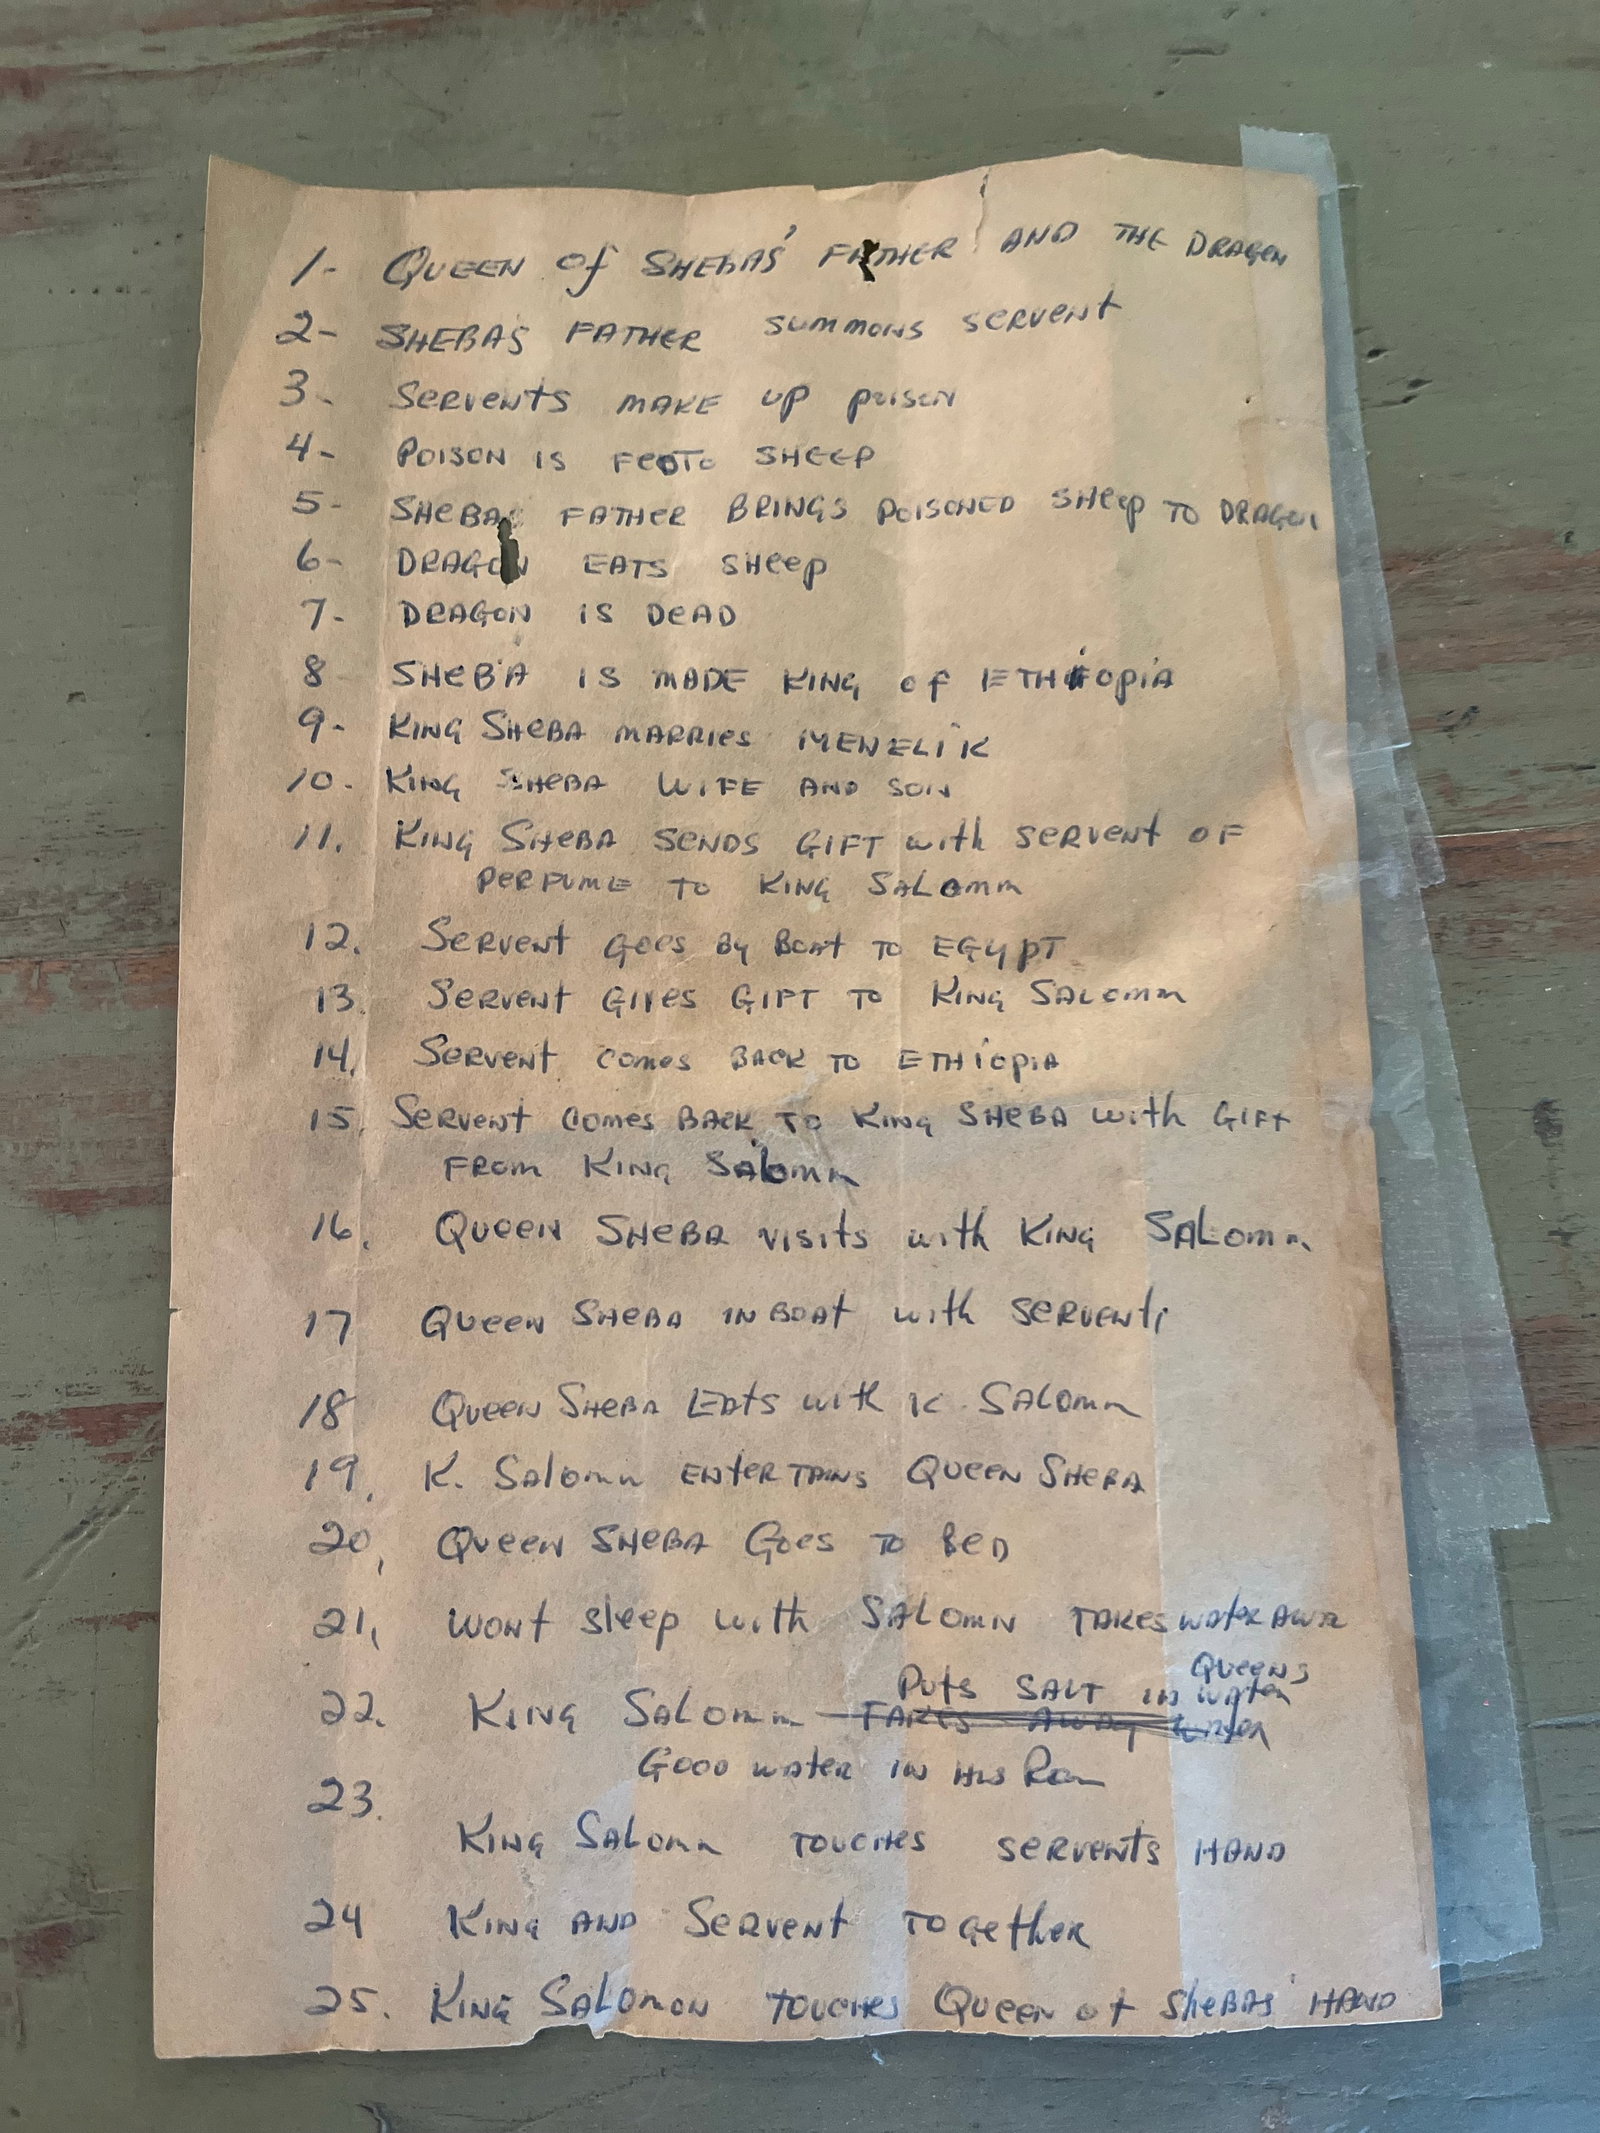 1- QUEEN of SHEBAS' FATHER AND THE DRAGON
2- SHEBAS FATHER SUMMONS SERVENT
3- SERVENTS MAKE UP POISON
4- POISON IS FED TO SHEEP
5- SHEBAS FATHER BRINGS POISONED SHEEP TO DRAGON
6- DRAGON EATS SHEEP
7- DRAGON IS DEAD
8 SHEBA IS MADE KING of ETHIOPIA
9- KING SHEBA MARRIES MENELIK
10. KING SHEBA WIFE AND SON
11. KING SHEBA SENDS GIFT with SERVENT OF
PERFUME TO KING SALOMN
12. SERVENT GOES BY BOAT TO EGYPT
13. SERVENT GIVES GIFT TO KING SALOMN
14. SERVENT COMES BACK TO ETHIOPIA
15. SERVENT COMES BACK TO KING SHEBA with GIFT
FROM KING SALOMN
16. QUEEN SHEBA VISITS with KING SALOMN
17 QUEEN SHEBA IN BOAT with SERVENTS
18 QUEEN SHEBA EATS with K. SALOMN
19. K. SALOMN ENTERTAINS QUEEN SHEBA
20. QUEEN SHEBA GOES TO BED
21. WONT sleep with SALOMN TAKES WATER AWA
QUEENS
PUTS SALT IN WATER
22. KING SALOMN TAKES AWAY WATER
GOOD WATER IN HIS
23.
KING SALOMN TOUCHES SERVENTS HAND
24 KING AND SERVENT TOGETHER
25. KING SALOMON TOUCHES QUEEN of SHEBAS' HAND